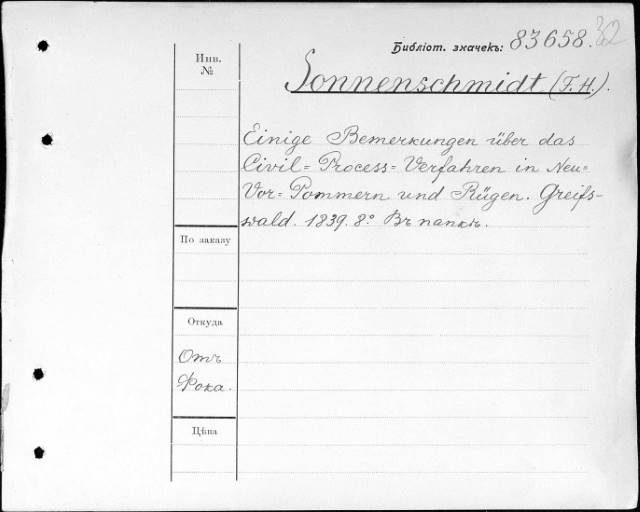 Библіот. значекъ: 83658. 32
Инв.
№
Sonnenschmidt (F. H.).
Einige Bemerkungen über das
Civil= Process= Verfahren in Neu=
Vor= Pommern und Rügen. Greifs-
wald. 1839. 8° Въ папкѣ.
По заказу
Откуда
Отъ
Фока.
Цѣна